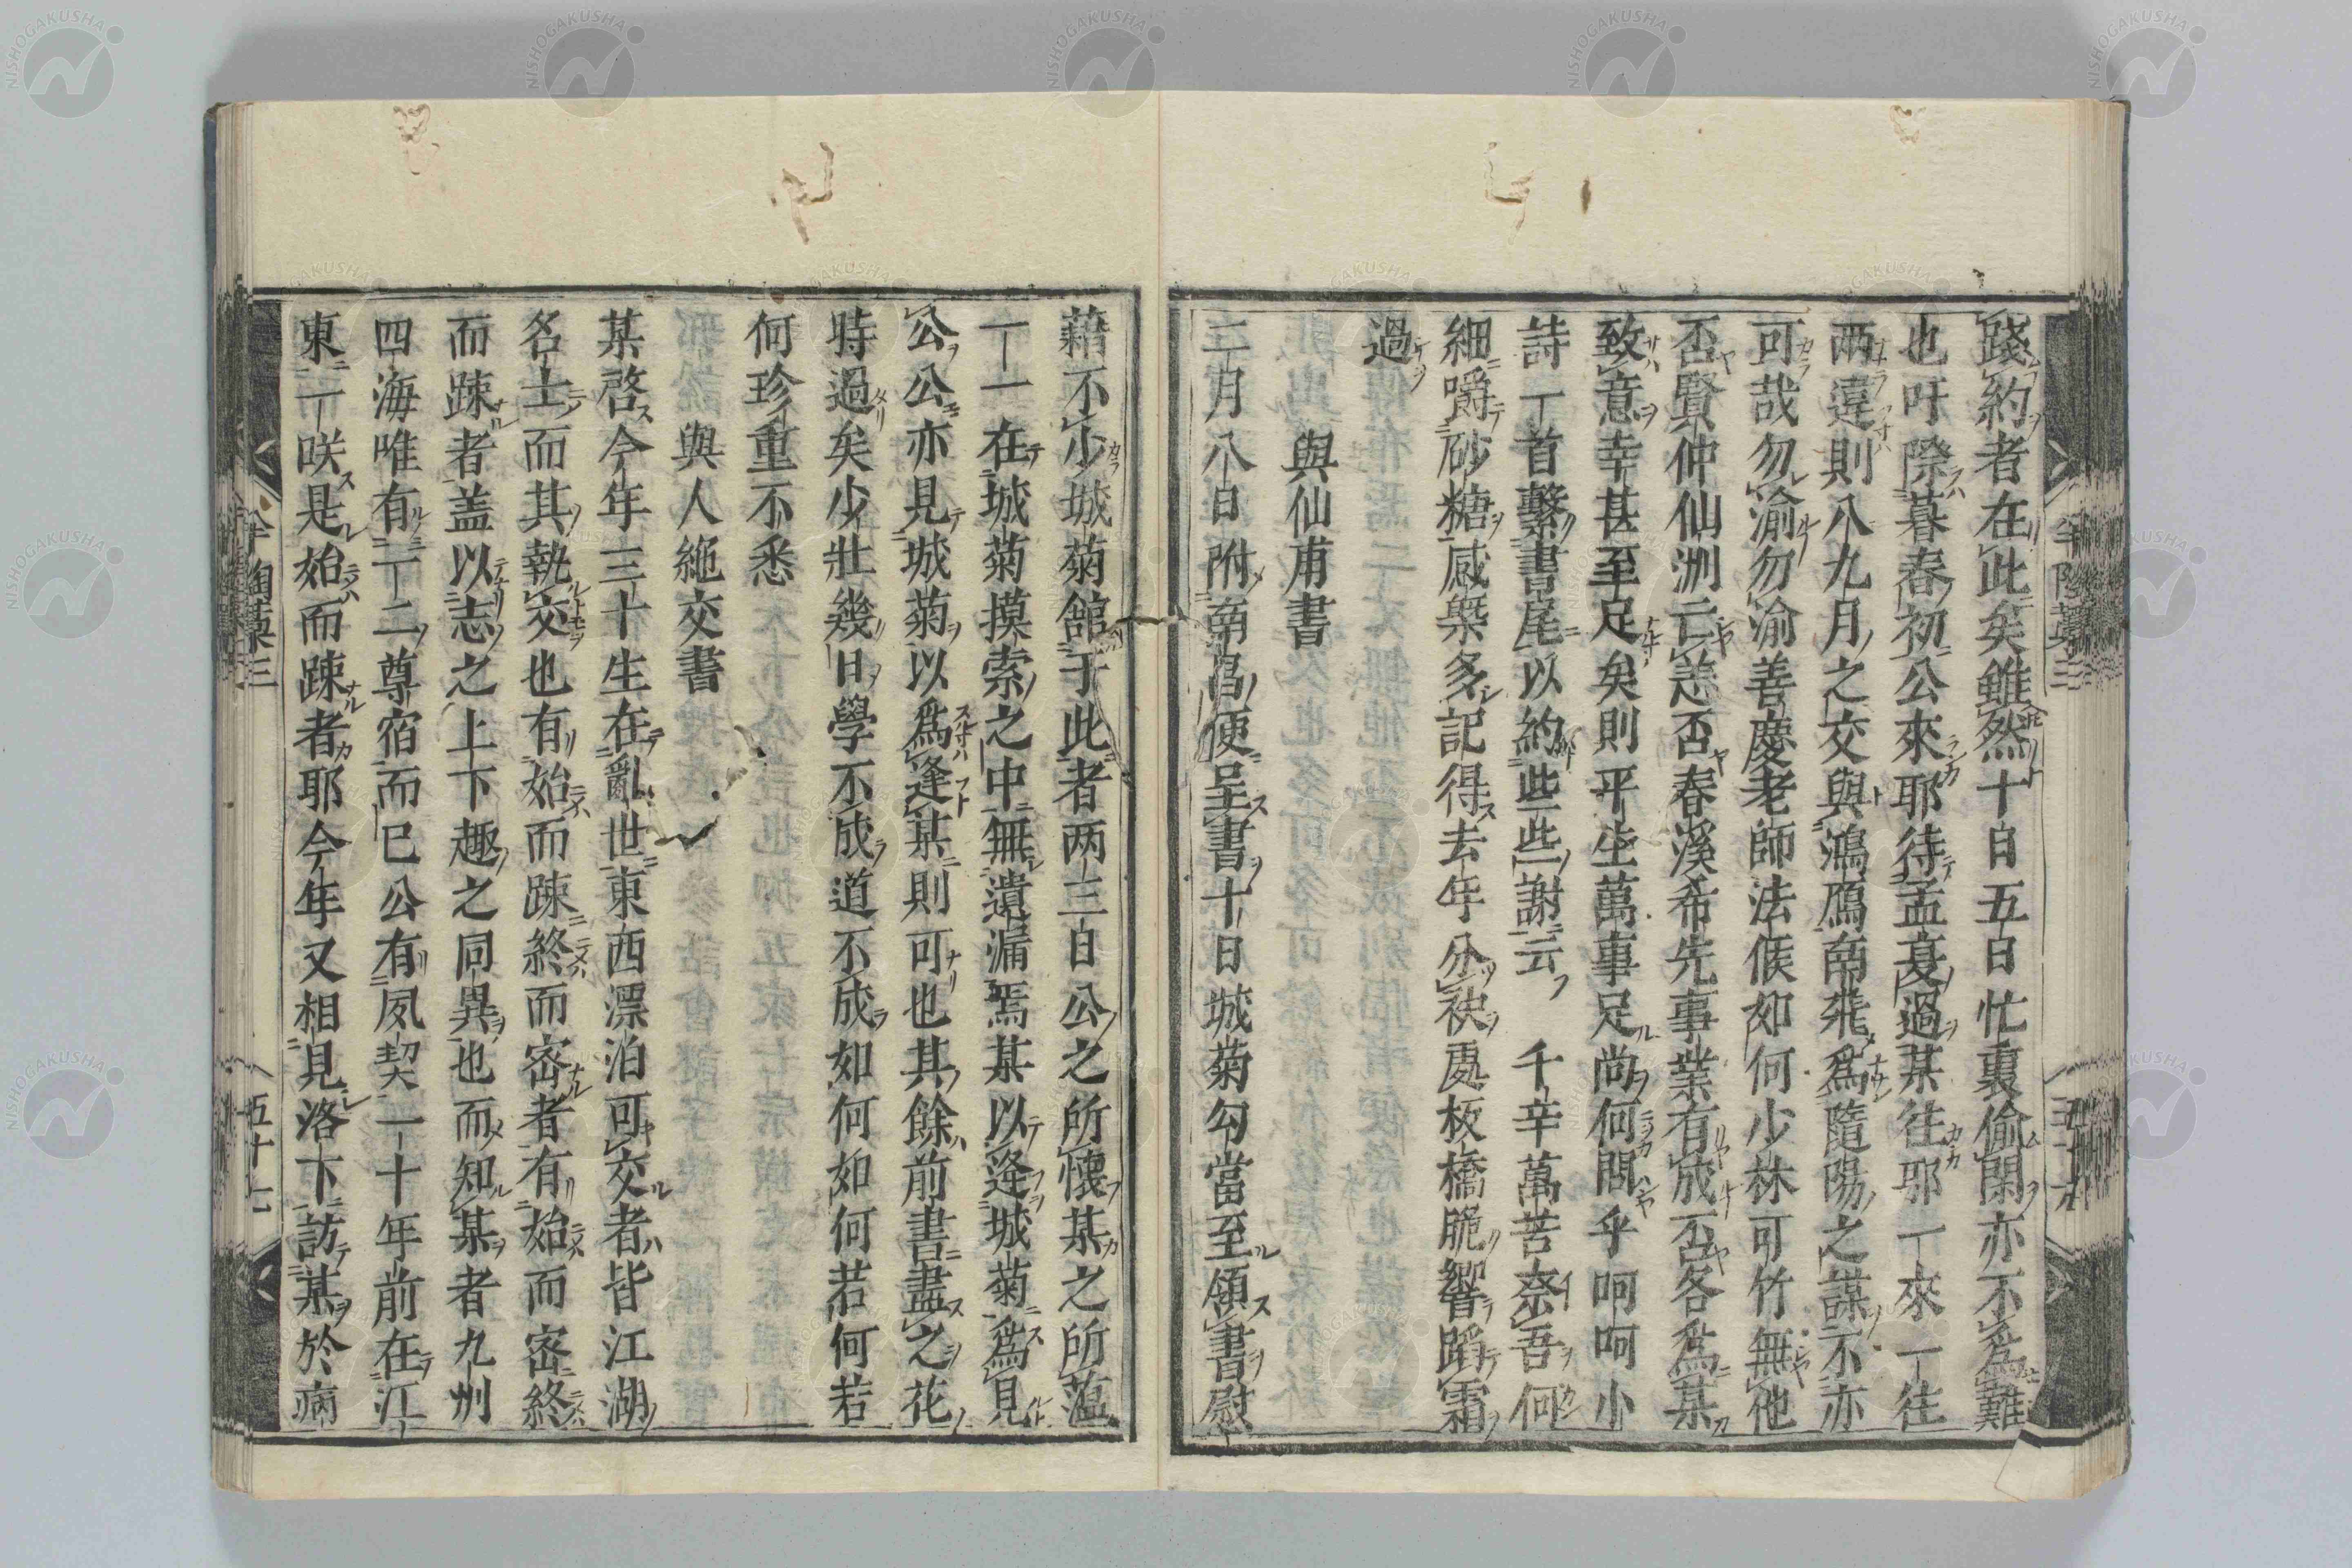 踐約者在此矣雖然十日五日忙裏偷閑亦不爲難
也吁際暮春初公來耶待孟夏過某往耶一來一往
兩違則八九月之交與鴻鴈南飛爲隨陽之謀不亦
可哉勿渝勿渝善慶老師法候如何少林可竹無他
否賢仲仙洲云恙否春溪希先事業有成否各爲某
致意幸甚至足矣則平生萬事足尚何問乎呵呵小
詩一首繫書尾以約些些謝云 千辛萬苦奈吾何
細嚼砂糖感槩多記得去年分袂處板橋脆響蹈霜
過
與仙甫書
二月八日附南昌便呈書十日城菊勾當至領書慰
藉不少城菊館于此者兩三日公之所懷某之所薀
一一在城菊摸索之中無遺漏焉某以逢城菊爲見
公公亦見城菊以爲逢某則可也其餘前書盡之花
時過矣少壯幾日學不成道不成如何如何若何若
何珍重不悉
與人絕交書
某啓今年三十生在亂世東西漂泊可交者皆江湖
名士而其執交也有始而踈終而密者有始而密終
而踈者盖以志之上下趣之同異也而知某者九州
四海唯有一二尊宿而已公有夙契一十年前在江
東一咲是始而踈者耶今年又相見洛下訪某於病
五十六
五十七